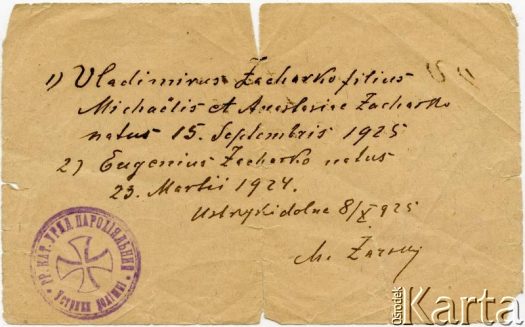 1) Vladimirus Zacharko filius
Michaëlis et Anastasiae Zacharko
natus 15. Septembris 1925
2) Eugenius Zacharko natus
23. Martii 1924.
Ustrzyki dolne 8/X 925
M.
ГР. КАТ. УРЯД ПАРОХІЯЛЬНИЙ
Устрики долішні
Ośrodek
Karta